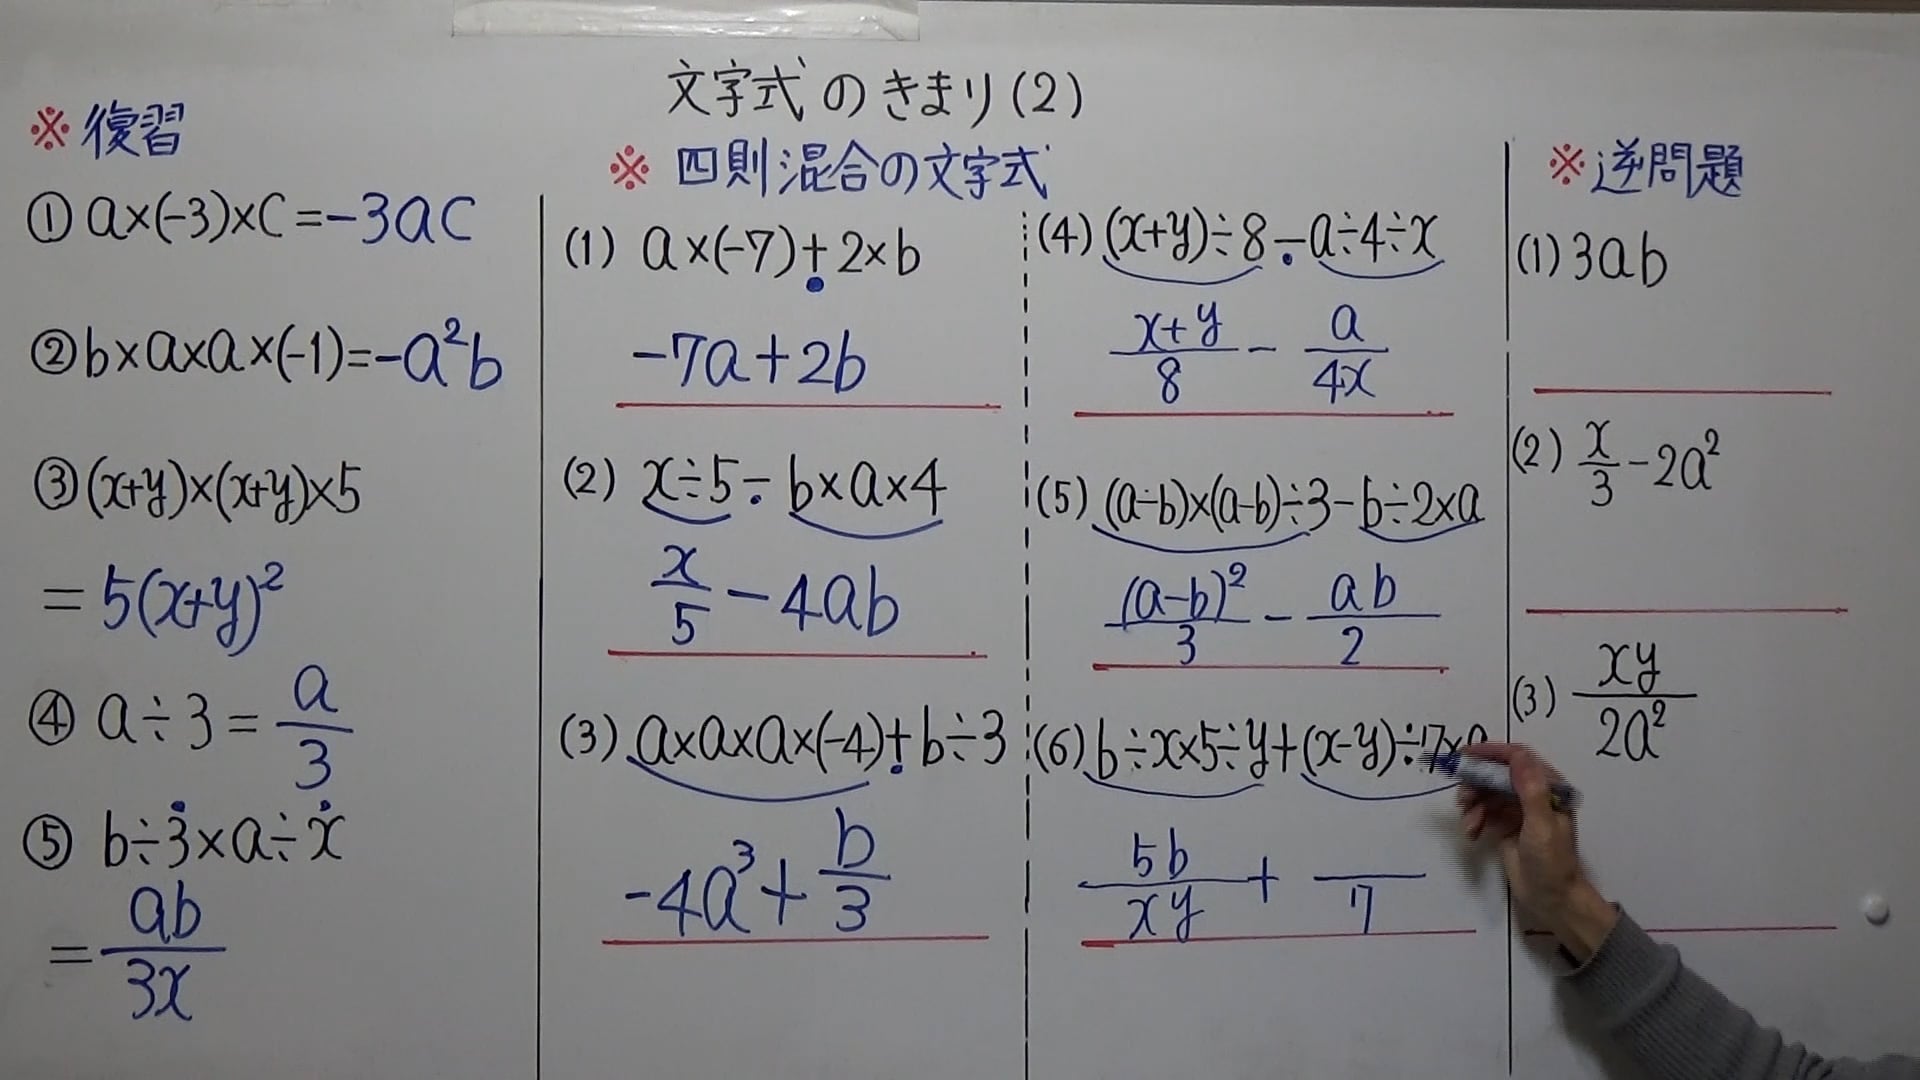 文字式のきまり(2)
※復習
①a×(-3)×c=-3ac
②b×a×a×(-1)=-a²b
③(x+y)×(x+y)×5
=5(x+y)²
④a÷3=a/3
⑤b÷3×a÷x
=ab/3x
※四則混合の文字式
(1) a×(-7)+2×b
-7a+2b
(2) x÷5-b×a×4
x/5-4ab
(3) a×a×a×(-4)+b÷3
-4a³+b/3
(4) (x+y)÷8-a÷4÷x
x+y/8-a/4x
(5) (a-b)×(a-b)÷3-b÷2×a
(a-b)²/3-ab/2
(6) b÷x×5÷y+(x-y)÷7×
5b/xy+ /7
※逆問題
(1) 3ab
(2) x/3-2a²
(3) xy/2a²